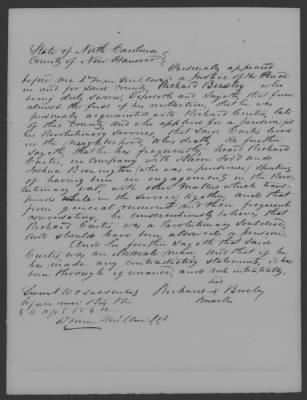 State of North Carolina
County of New Hanover
Personally appeared
before me a Justice of the Peace
in and for said County, Richard Beasley who
being duly sworn, deposeth and sayeth, that from
almost the first of his recollection, that he was
personally acquainted with Richard Curtis, late
of this County and who applied for a pension for
his Revolutionary services, that said Curtis lived
in the neighborhood, who death, He further
sayeth, that he has frequently heard Richard
Curtis, in company with Todd and
Joshua (who was a pensioner) speaking
of having been in engagements in the Revo-
lutionary war, with other matters which hap-
pened while in the service together and that
from general and their frequent
conversations, he conscientiously believes that
Richard Curtis was a Revolutionary Soldier,
and should have been allowed a pension,
And he further sayeth that said
Curtis was an illiterate man and that if he
has made any contradictory statements, it has
been through ignorance, and not intentially,
his
Sworn to & subscribed Richard X Beasley
before me this the mark